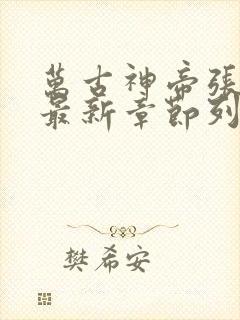 萬古神帝張
最新章節列
樊希安